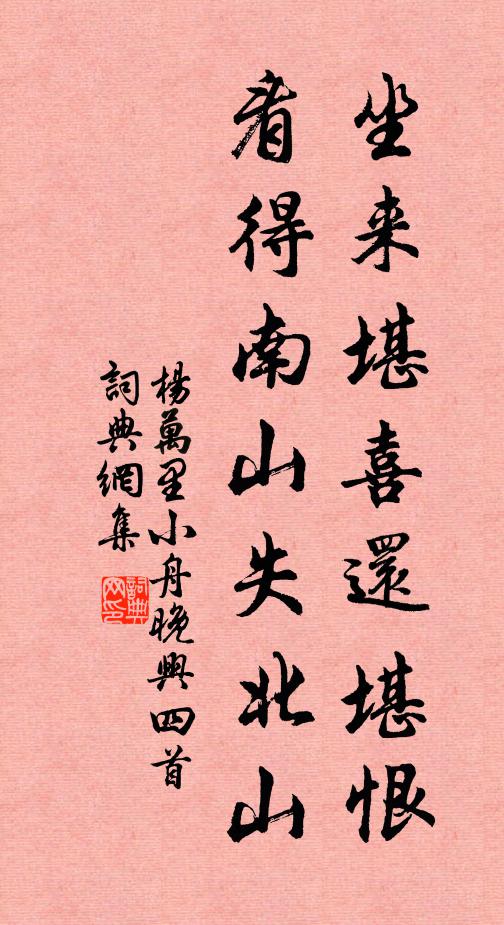 坐来堪喜還堪恨
看得南山失北山
楊萬里小舟晚興四首
詞典網集
詞典网印